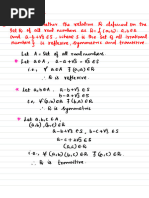 the relation R defined on the
set R of all real numbers as R = { (a,b): a,b ∈ R
and a-b+√3 ∈ S, where S is the set of all irrational
numbers} is reflexive, symmetric and transitive.
Let A = Set of all real numbers
* Let a ∈ A, a-a+√3 = √3 ∈ S
i.e., ∀ a ∈ A ∃ (a,a) ∈ R
∴ R is reflexive.
* Let a,b ∈ A,
a-b+√3 ∈ S, b-a+√3 ∈ S
i.e., ∀ (a,b) ∈ R ∃ (b,a) ∈ R
∴ R is symmetric
* Let a,b,c ∈ A,
(a,b), (b,c) ∈ R
a-b+√3 ∈ S, b-c+√3 ∈ S
a-c+√3 ∈ S
i.e., ∀ (a,b), (b,c) ∈ R ∃ (a,c) ∈ R
∴ R is transitive.